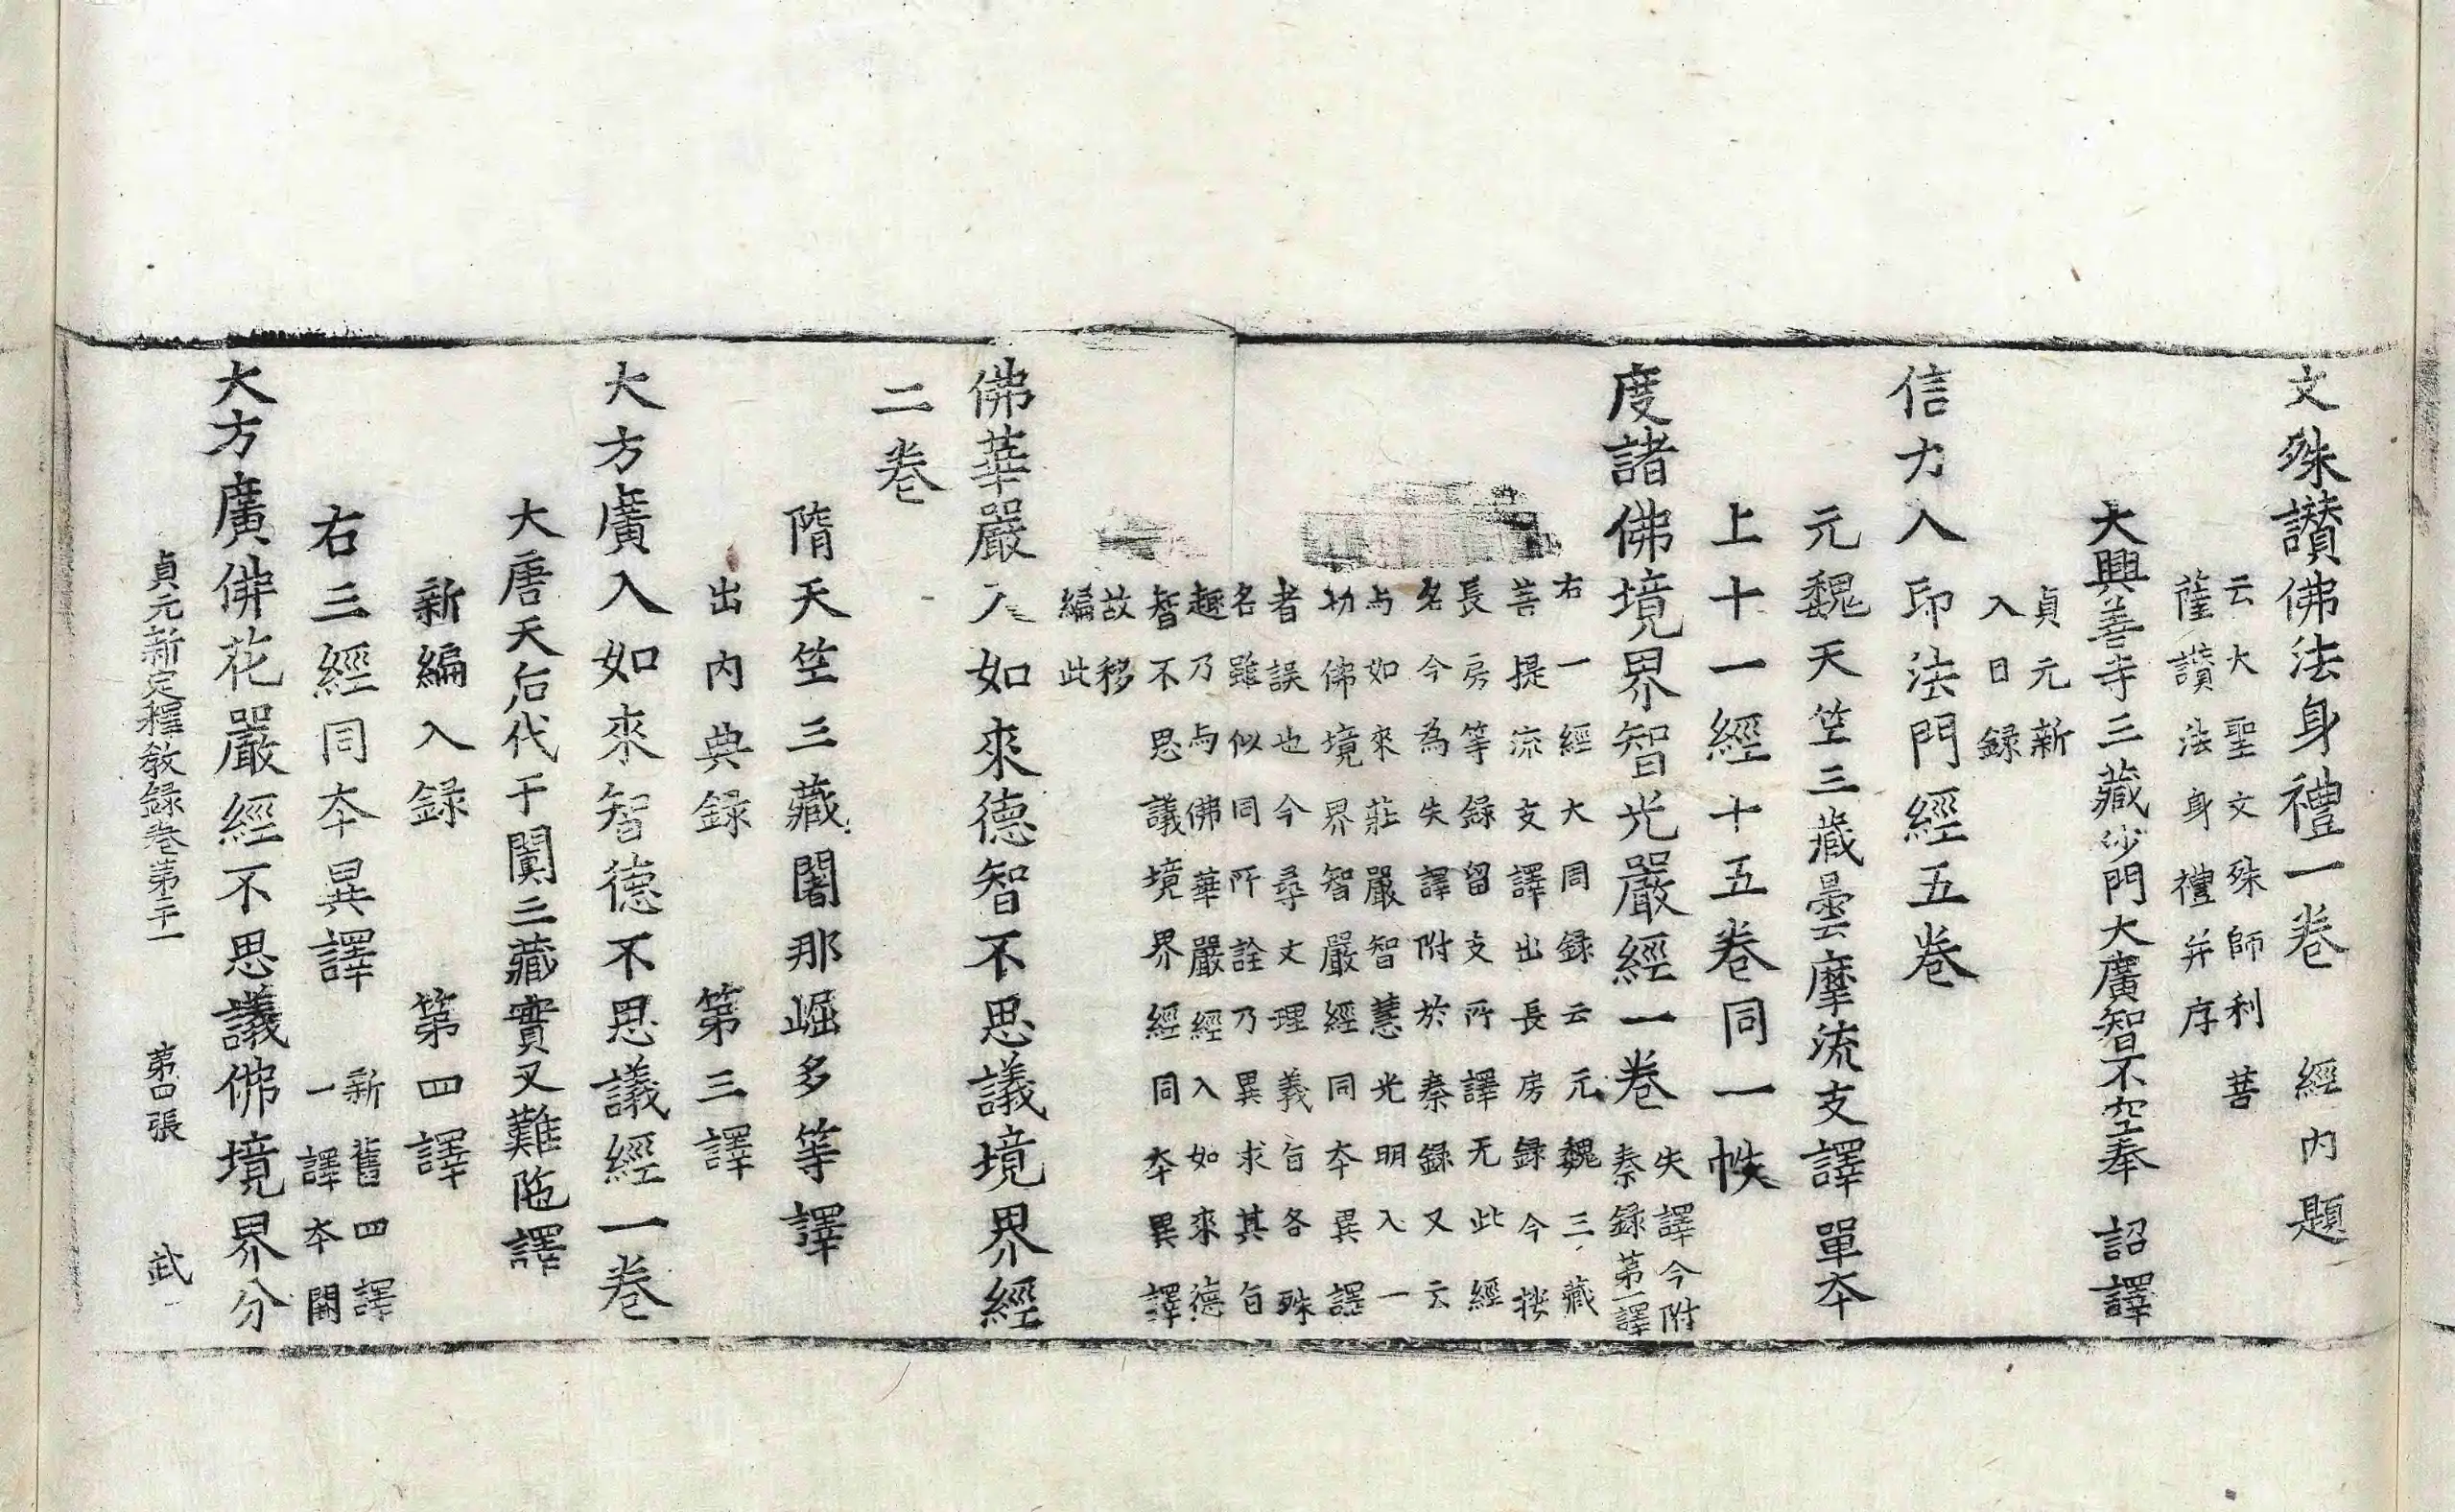 文殊讃佛法身禮一卷 經内題
云大聖文殊師利菩
薩讃法身禮并序
大興善寺三藏沙門大廣智不空奉 詔譯
貞元新
入目録
信力入印法門經五卷
元魏天竺三藏曇摩流支譯 單夲
上十一經十五卷同一帙
度諸佛境界智光嚴經一卷
失譯今附
秦録第一譯
右一經大周録云元魏三藏
菩提流支譯出長房録今按
長房等録留支所譯无此經
名今為失譯附於秦録又云
与如來莊嚴智慧光明入一
切佛境界智嚴經同夲異譯
者誤也今尋文理義旨各殊
名雖似同所詮乃異求其旨
趣乃与佛華嚴經入如來德
智不思議境界經同夲異譯
故移
編此
佛華嚴入如來德智不思議境界經
二卷
隋天竺三藏闍那崛多等譯
出内典録 第三譯
大方廣入如來智德不思議經一卷
大唐天后代于闐三藏實叉難陁譯
新編入録 第四譯
右三經同夲異譯
新舊四譯
一譯夲闕
大方廣佛花嚴經不思議佛境界分
貞元新定釋教録卷第二十一 第四張 武